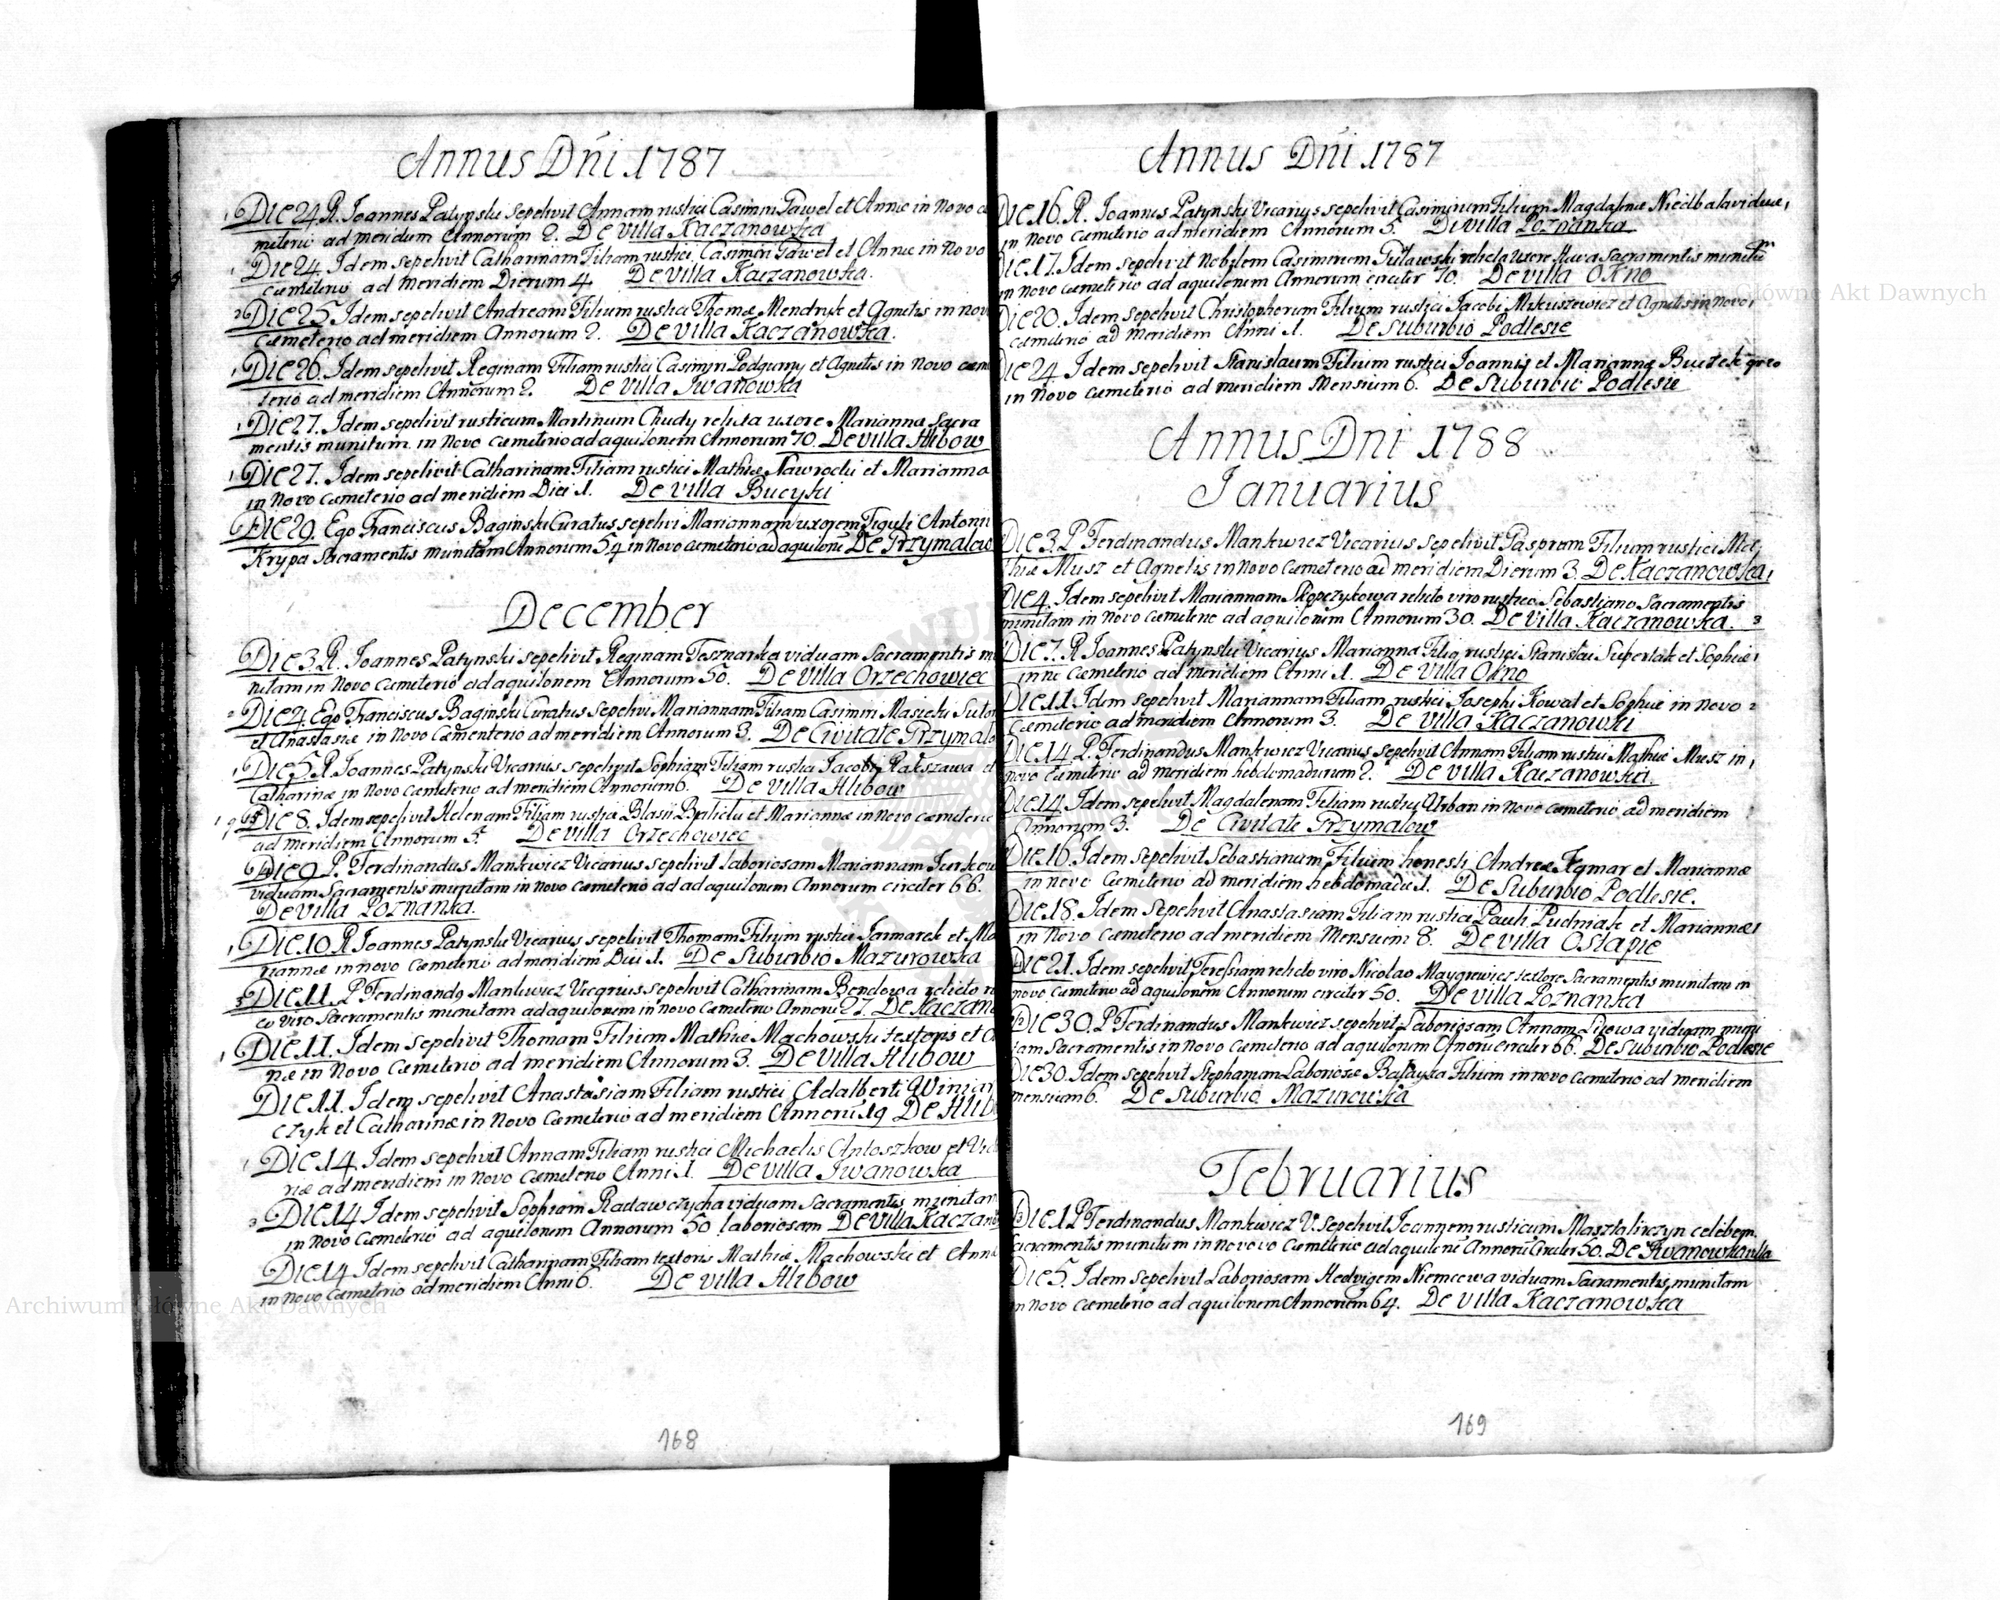 Annus Dñi 1787
Die 24. R. Joannes Patynski Sepelivit Annam rustici Casimiri Pawel et Annæ in Novo
miterio ad meridiem Annorum 2. De Villa Kaczanowka
Die 24. Idem sepelivit Catharinam Filiam rustici Casimiri Pawel et Annæ in Novo
Cœmiterio ad meridiem Dierum 4. De Villa Kaczanowka.
Die 25. Idem sepelivit Andream Filium rustici Thomæ Mendryk et Agnetis in nov
Cœmeterio ad meridiem Annorum 2. De Villa Kaczanowka.
Die 26. Idem sepelivit Reginam Filiam rustici Casimiri Podgurny et Agnetis in Novo cœm
terio ad meridiem Annorum 2. De Villa Iwanowka
Die 27. Idem sepelivit rusticum Martinum Chudy relicta uxore Marianna Sacra
mentis munitum in Novo Cœmeterio ad aquilonem Annorum 70. De villa Hlibow
Die 27. Idem sepelivit Catharinam Filiam rustici Mathiæ Nawrocki et Marianna
in Novo Cœmeterio ad meridiem Diei 1. De Villa Bucyki
Die 29. Ego Franciscus Baginski Curatus sepelivi Mariannam uxorem Figuli Antonii
Krypa Sacramentis munitam Annorum 54 in Novo Cœmeterio ad aquilonē De Przymalow
December
Die 3. R. Joannes Patynski sepelivit Reginam viduam Sacramentis mu
nitam in Novo Cœmeterio ad aquilonem Annorum 50. De Villa Orzechowiec
Die 4. Ego Franciscus Baginski Curatus Sepelivi Mariannam Filiam Casimiri Masicki Sutor
et Anastasiæ in Novo Cœmenterio ad meridiem Annorum 3. De Civitate Przymalo
Die 5. R. Joannes Patynski Vicarius sepelivit Sophiam Filiam rustici Jacobi Rakszawa et
Catharinæ in Novo Cœmeterio ad meridiem Annorum 6. De Villa Hlibow
Die 8. Idem sepelivit Helenam Filiam rustici Blasii et Mariannæ in Novo cœmiterio
ad meridiem Annorum 5. De Villa Orzechowiec
Die 9. P. Ferdinandus Mankwicz Vicarius sepelivit laboriosam Mariannam Jurkow
viduam Sacramentis munitam in Novo Cœmeterio ad ad aquilonem Annorum circiter 66.
De Villa Poznanka.
Die 10. R. Joannes Patynski Vicarius sepelivit Thomam Filium rustici Jarmarek et Ma
riannæ in novo Cœmeterio ad meridiem Diei 1. De Suburbio Mazurowka
Die 11. P. Ferdinandq Mankwicz Vicarius sepelivit Catharinam Bendowa relicto
co viro Sacramentis munitam ad aquilonem in novo Cœmeterio Annorū 27. De Kaczan
Die 11. Idem sepelivit Thomam Filium Mathiæ Machowski textoris et
næ in Novo Cœmeterio ad meridiem Annorum 3. De Villa Hlibow
Die 11. Idem sepelivit Anastasiam Filiam rustici Adalberti Winiar
czyk et Catharinæ in Novo Cœmeterio ad meridiem Annorū 19 De Hlib
Die 14. Idem sepelivit Annam Filiam rustici Michaelis Antoszkow et
riæ ad meridiem in Novo Cœmeterio Anni 1. De Villa Iwanowka
Die 14 Idem sepelivit Sophiam Radawczycha viduam Sacramentis munitam
in Novo Cœmeterio ad aquilonem Annorum 50 laboriosam De Villa Kaczan
Die 14 Idem sepelivit Catharinam Filiam textoris Mathiæ Machowski et Ann
in Novo Cœmeterio ad meridiem Anni 6. De Villa Hlibow
168
Annus Dñi 1787
Die 16. R. Joannes Patynski Vicarius sepelivit Casimirum Filium Magdalenæ viduæ
in Novo Cœmeterio ad meridiem Annorum 5. De Villa Poznanka
Die 17. Idem sepelivit Nobilem Casimirum Pulawski relicta uxore Sacramentis munitū
in Novo Cœmeterio ad aquilonem Annorum circiter 70. De Villa Okno
Die 20. Idem sepelivit Christophorum Filium rustici Jacobi Mikuszewicz et Agnetis in Novo
Cœmiterio ad meridiem Anni 1. De Suburbio Podlesie
Die 24. Idem sepelivit Stanislaum Filium rustici Joannis et Mariannæ
in Novo Cœmeterio ad meridiem Mensium 6. De Suburbio Podlesie
Annus Dni 1788
Ianuarius
Die 3. P. Ferdinandus Mankwicz Vicarius Sepelivit Filium rustici Mat
thiæ Musz et Agnetis in Novo Cœmeterio ad meridiem Dierum 3. De Kaczanowka
Die 4. Idem sepelivit Mariannam Skopczykowa relicto viro rustico Sebastiano Sacramentis
munitam in Novo Cœmeterio ad aquilonem Annorum 30. De Villa Kaczanowka.
Die 7. R. Joannes Patynski Vicarius Marianna Filia rustici Stanislai Superlak et Sophiæ
in no Cœmeterio ad meridiem Anni 1. De Villa Okno
Die 11. Idem sepelivit Mariannam Filiam rustici Josephi Kowal et Sophiæ in Novo
Cœmiterio ad meridiem Annorum 3. De Villa Kaczanowki
Die 14. P. Ferdinandus Mankwicz Vicarius sepelivit Annam Filiam rustici Mathiæ Musz in
novo Cœmeterio ad meridiem hebdomadarum 2. De Villa Kaczanowka
Die 14. Idem sepelivit Magdalenam Filiam rustici Urban in Novo Cœmeterio ad meridiem
Annorum 3. De Civitate Przymalow
Die 16. Idem sepelivit Sebastianum Filium honesti Andreæ et Mariannæ
in novo Cœmiterio ad meridiem hebdomada 1. De Suburbio Podlesie.
Die 18. Idem Sepelivit Anastasiam Filiam rustici Pauli Pudniak et Mariannæ
in Novo Cœmeterio ad meridiem Mensium 8. De Villa Ostapie
Die 21. Idem sepelivit Teressiam relicto viro Nicolao Maygrewicz textore Sacramentis munitam in
novo Cœmeterio ad aquilonem Annorum circiter 50. De Villa Poznanka
Die 30. P Ferdinandus Mankwicz sepelivit Laboriosam Annam viduam muni
tam Sacramentis in Novo Cœmeterio ad aquilonem Annorū Circiter 66. De Suburbio Podlesie
Die 30. Idem sepelivit Stephanum Laboriosæ Filium in novo Cœmeterio ad meridiem
mensium 6. De Suburbio Mazurowka
Februarius
Die 1. P Ferdinandus Mankwicz V. Sepelivit Joannem rusticum celibem
Sacramentis munitum in Novo Cœmeterio ad aquilonē Annorū Circiter 50. De Iwanowka villa
Die 5. Idem Sepelivit Laboriosam Hedvigem Niemcowa viduam Sacramentis munitam
in Novo Cœmeterio ad aquilonem Annorum 64. De Villa Kaczanowka
169
Archiwum Główne Akt Dawnych
Archiwum Główne Akt Dawnych